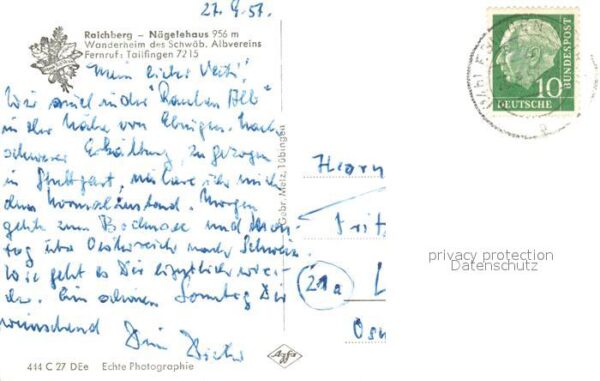 27.9.57.
Raichberg – Nägelehaus 956 m
Wanderheim des Schwäb. Albvereins
Fernruf: Tailfingen 7215
Mein lieber
Wir sind in der "Rauhen Alb"
in der Nähe von Ebingen. Nach
schwerer Erkältung, zugezogen
in Stuttgart, ich mich
dem Normalzustand. Morgen
geht's zum Bodensee und
tag über Oesterreich nach
Wie geht es Dir eigentlich
Ein schönen Sonntag Dir
wünschend Dein
Gebr. Metz, Tübingen
Herrn
Frit
21a
L
Osn
10
DEUTSCHE
BUNDESPOST
privacy protection
Datenschutz
414 C 27 DEe Echte Photographie
Agfa